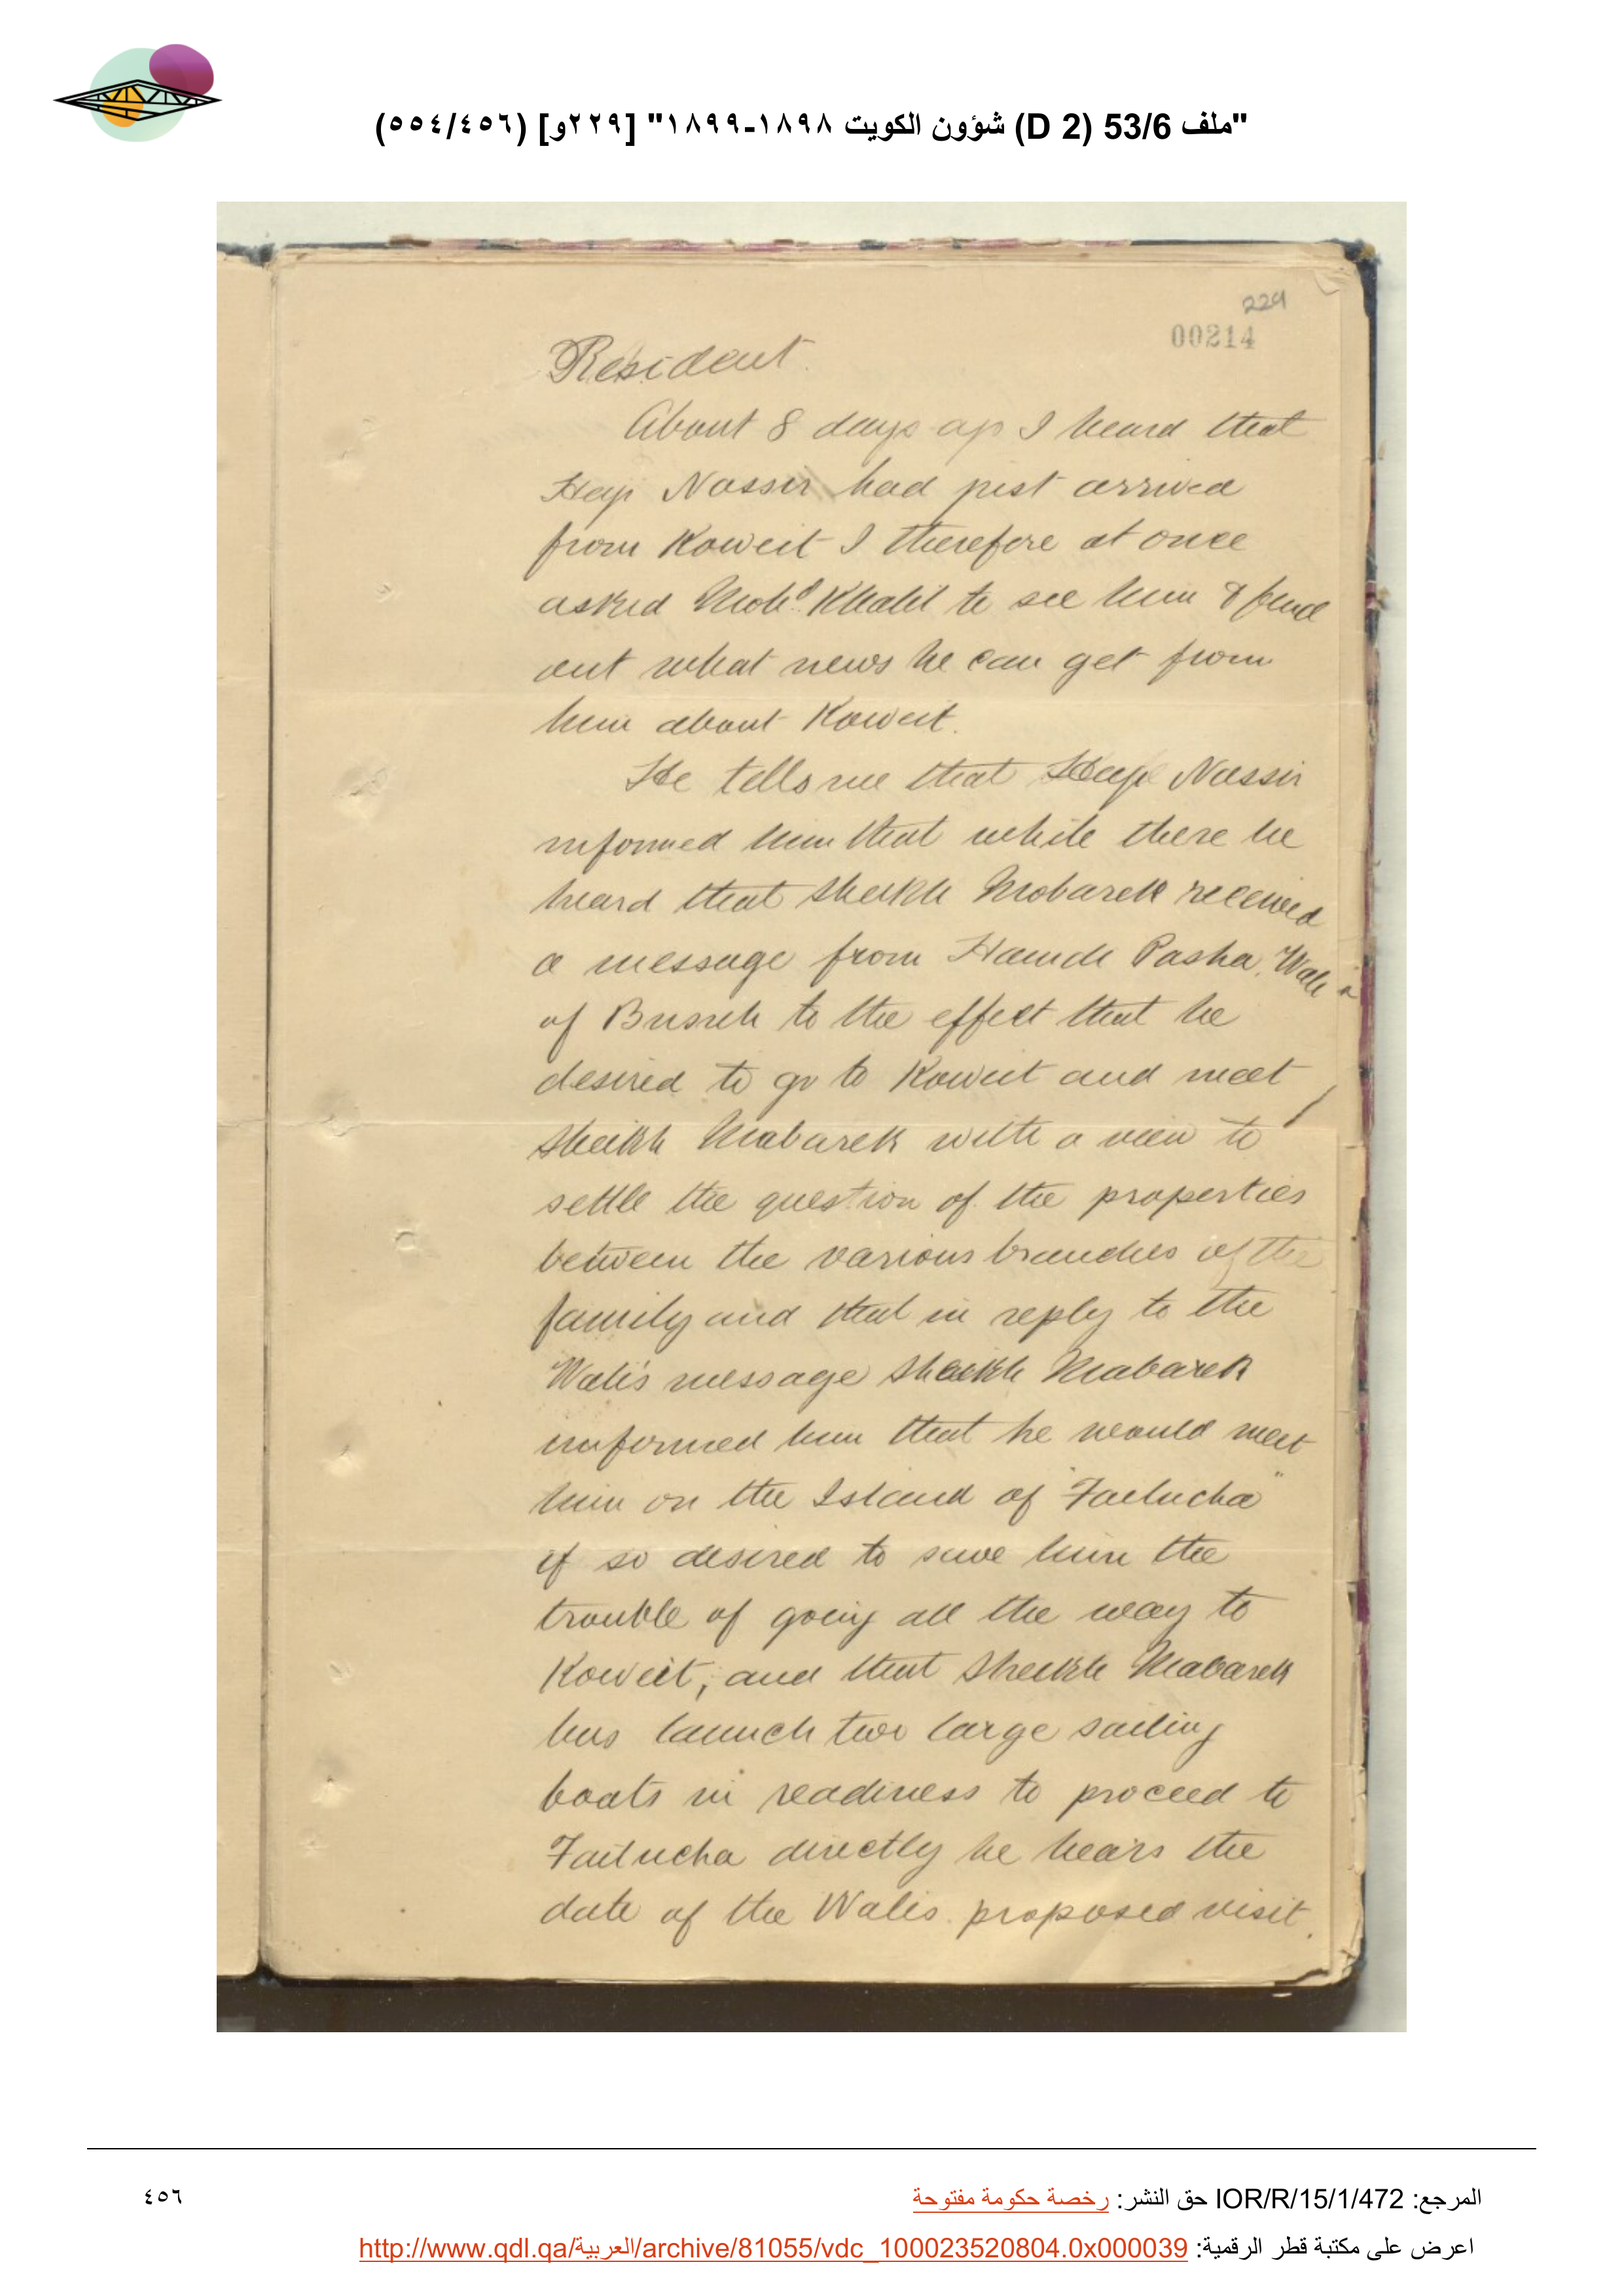 "ملف 53/6 (D 2) شؤون الكويت ١٨٩٨-١٨٩٩" [٢٢٩و] (٥٥٤/٤٥٦)
229
00214
Resident.
About 8 days ago I heard that
Haji Nassir had just arrived
from Koweit I therefore at once
asked Mohd. Khalil to see him & find
out what news he can get from
him about Koweit.
He tells me that Haji Nassir
informed him that while there he
heard that Sheikh Mobarek received
a message from Hamdi Pasha, Wali
of Busreh to the effect that he
desired to go to Koweit and meet
Sheikh Mabarek with a view to
settle the question of the properties
between the various branches of the
family and that in reply to the
Wali's message Sheikh Mabarek
informed him that he would meet
him on the Island of "Failucha"
if so desired to save him the
trouble of going all the way to
Koweit; and that Sheikh Mabarek
has launch two large sailing
boats in readiness to proceed to
Failucha directly he hears the
date of the Walis proposed visit.
المرجع: IOR/R/15/1/472 حق النشر: رخصة حكومة مفتوحة
٤٥٦
اعرض على مكتبة قطر الرقمية: http://www.qdl.qa/العربية/archive/81055/vdc_100023520804.0x000039